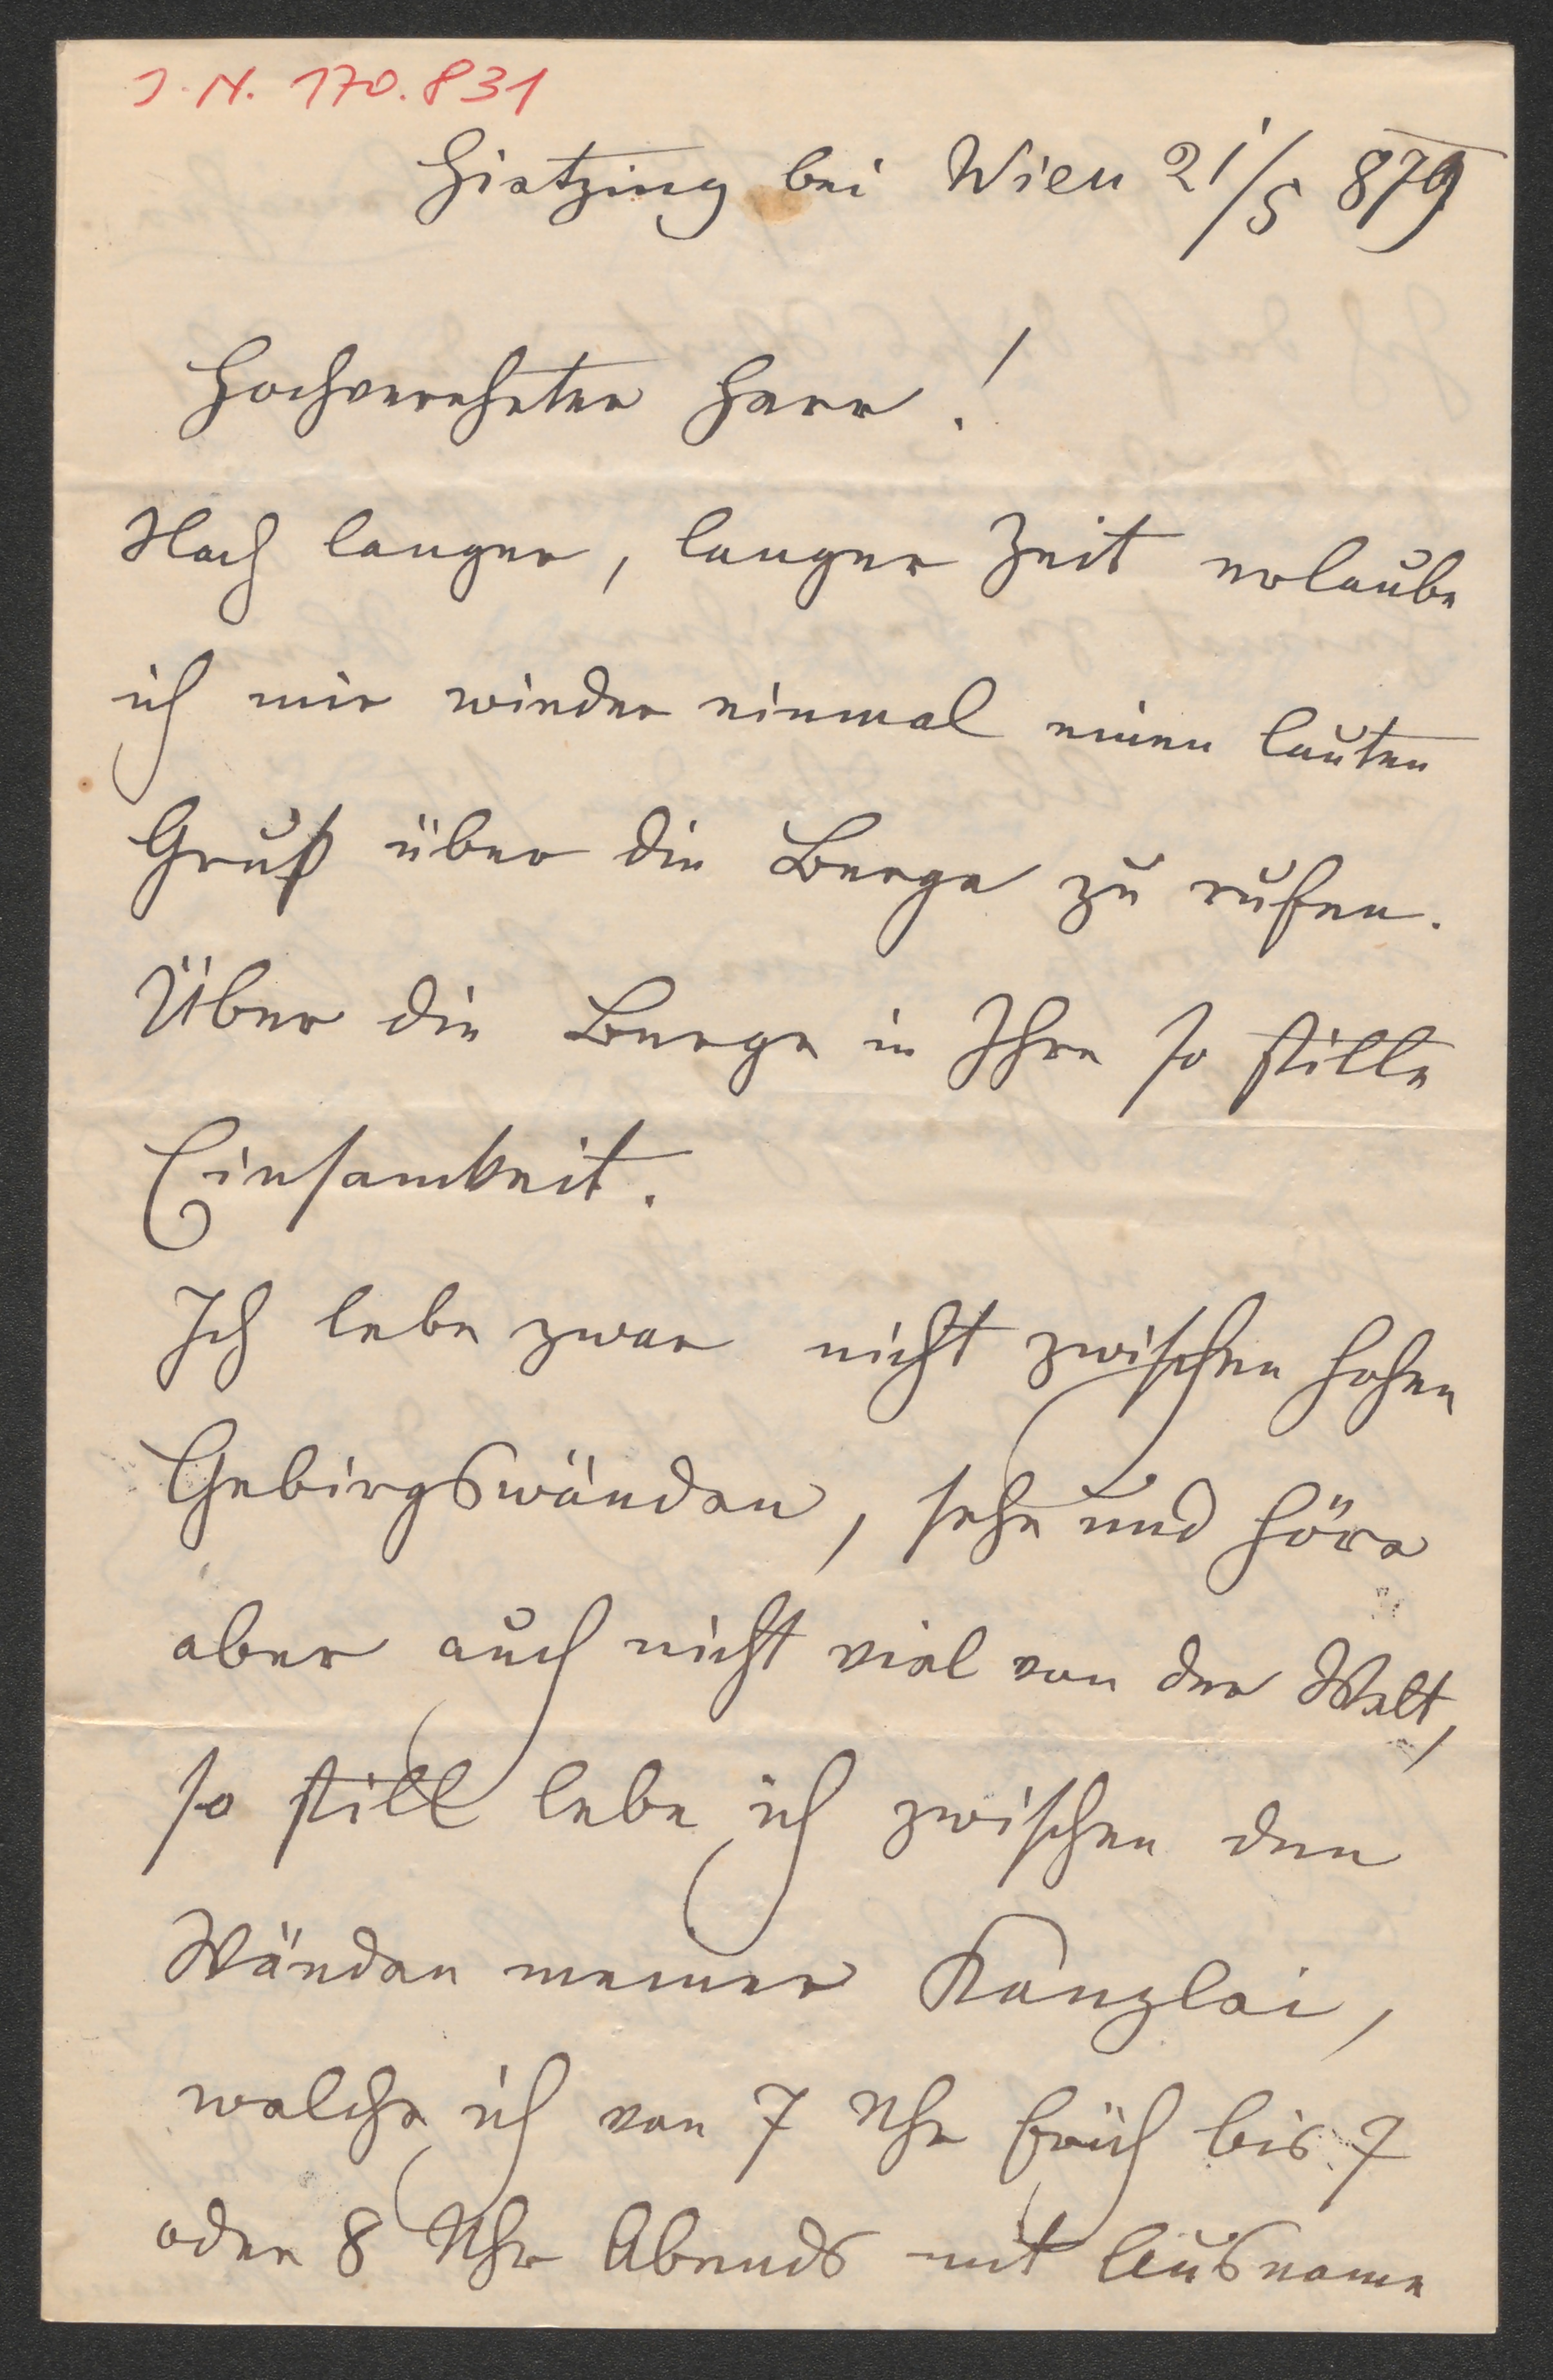 J. N. 170.831
Hietzing bei Wien 21/5 879
Hochverehrter Herr!
Nach langer, langer Zeit erlaube
ich mir wieder einmal einen lauten
Gruß über die Berge zu rufen.
Über die Berge in Ihre so stille
Einsamkeit.
Ich lebe zwar nicht zwischen hohen
Gebirgswänden, sehe und höre
aber auch nicht viel von der Welt,
so still lebe ich zwischen den
Wänden meiner Kanzlei,
welche ich von 7 Uhr früh bis 7
oder 8 Uhr Abends mit Ausname